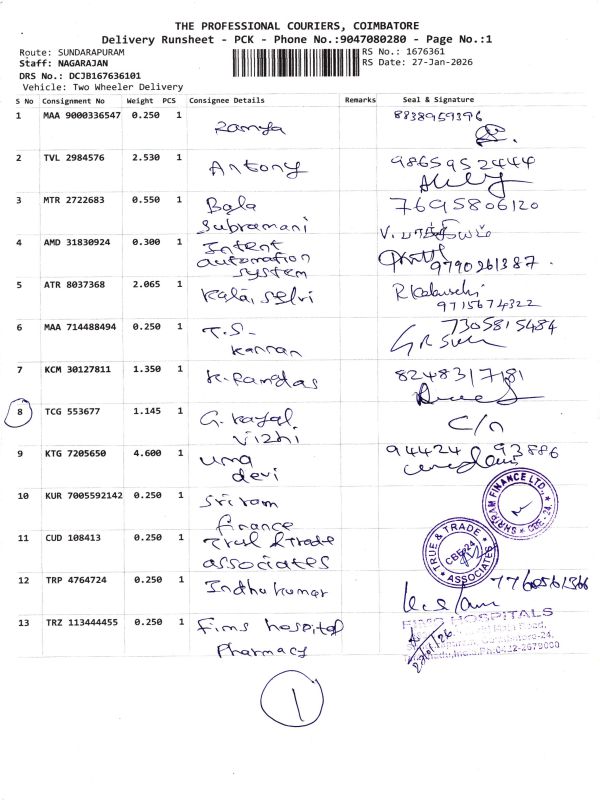 THE PROFESSIONAL COURIERS, COIMBATORE
Delivery Runsheet - PCK - Phone No.:9047080280 - Page No.:1
Route: SUNDARAPURAM RS No.: 1676361
Staff: NAGARAJAN RS Date: 27-Jan-2026
DRS No.: DCJB167636101
Vehicle: Two Wheeler Delivery
S No Consignment No Weight PCS Consignee Details Remarks Seal & Signature
1 MAA 9000336547 0.250 1 Ramya 8838959396
2 TVL 2984576 2.530 1 Antony 9865952444
3 MTR 2722683 0.550 1 Bala 7695806120
Subramani V.
4 AMD 31830924 0.300 1 Intent
automation 9790261387.
system
5 ATR 8037368 2.065 1 Kalai Selvi R
9715674322
6 MAA 714488494 0.250 1 T.S- 7305815484
Kannan
7 KCM 30127811 1.350 1 K.Ramdas 8248317181
8 TCG 553677 1.145 1 G. Kayal C/n
Vizhi
9 KTG 7205650 4.600 1 Uma 94424 93886
devi
10 KUR 7005592142 0.250 1 Sriram SHRIRAM FINANCE LTD., CBE-24
finance
11 CUD 108413 0.250 1 & trade TRUE & TRADE ASSOCIATES CBE-24
associates
12 TRP 4764724 0.250 1 Indhukumar 7760561366
13 TRZ 113444455 0.250 1 Fims hospital FIMS HOSPITALS
Pharmacy Coimbatore-24.
Ph:0422-2679000
1